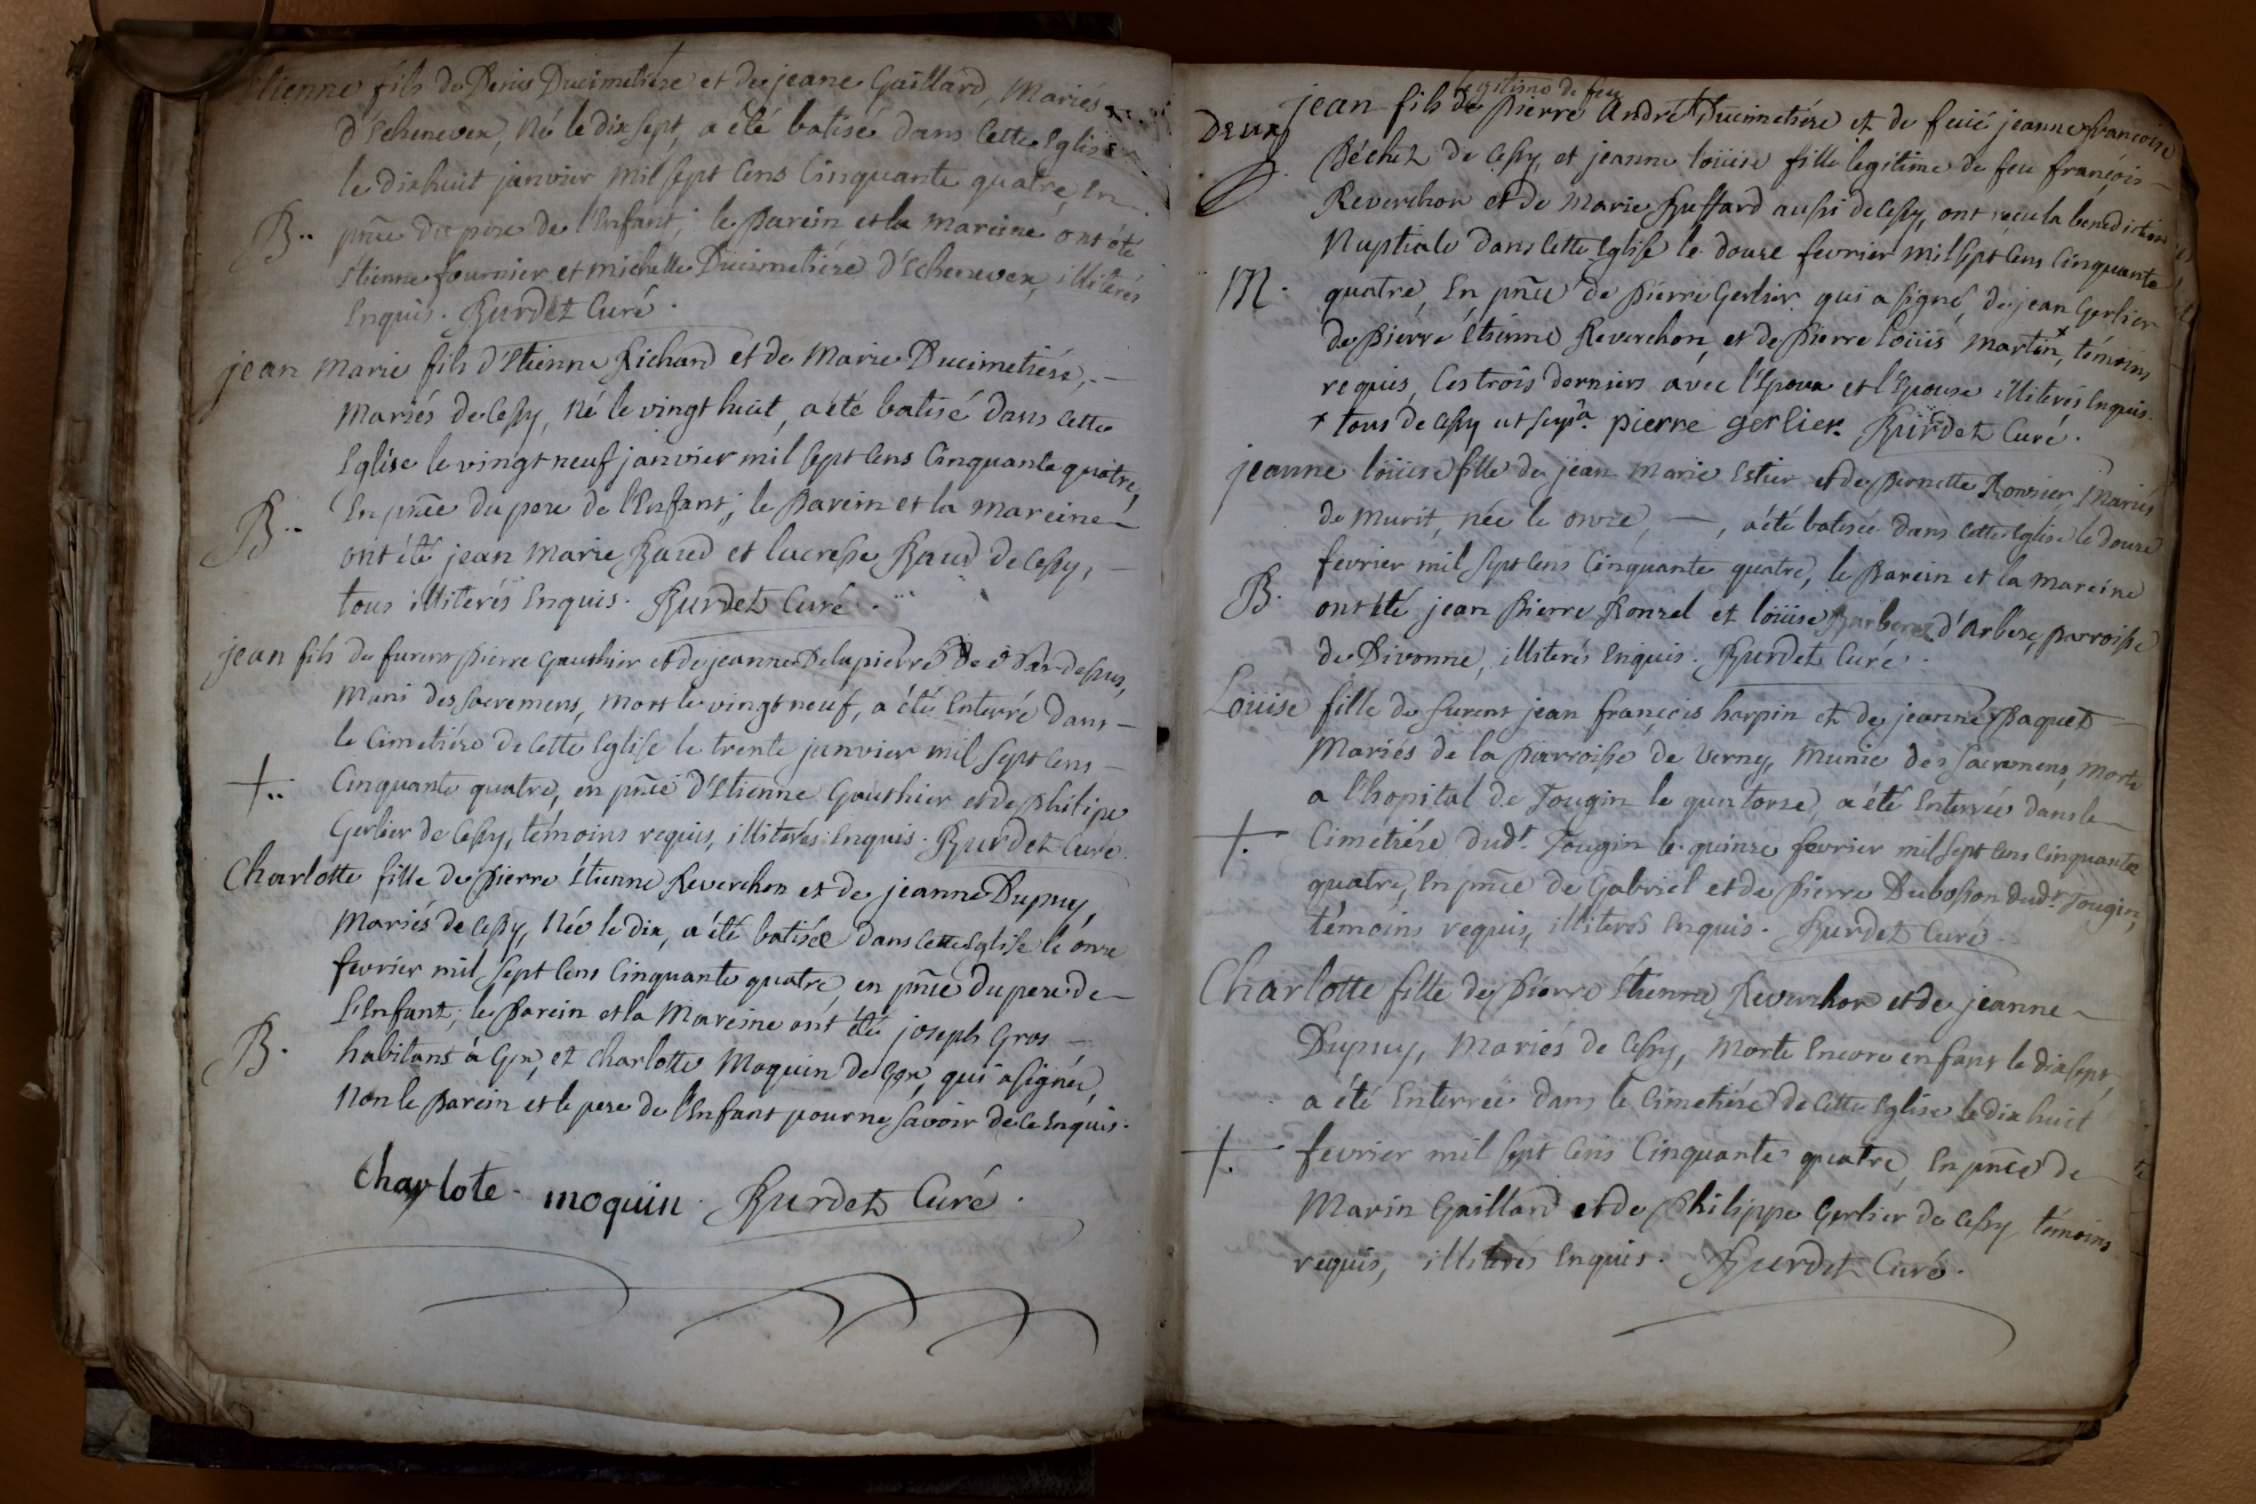 Etienne fils de Denis Ducimetiére et de jeane Gaillard, Mariés
d'Echenevex, Né le dix sept, a été batisé dans Cette Eglise
le dixhuit janvier Mil sept Cens Cinquante quatre, En
B.. pñce du pere de l'Enfant; le Parein et la Mareine ont été
Etienne fournier et michelle Ducimetiére d'Echenevex, illiterés
Enquis. Burdet Curé.
jean Marie fils d'Etienne Richard et de Marie Ducimetiére,
Mariés de Cessy, Né le vingt huit, a été batisé dans Cette
Eglise le vingt neuf janvier mil sept Cens Cinquante quatre,
En pñce du pere de l'Enfant; le Parein et la mareine
B.. ont été jean Marie Baud et lucresse Baud de Cessy,
tous illiterés Enquis. Burdet Curé.
jean fils de furent pierre Gauthier et de jeanne Delapierre
Muni des sacremens, mort le vingt neuf, a été Enterré dans
le Cimetiére de Cette Eglise le trente janvier mil sept Cens
+.. Cinquante quatre, en pñce d'Etienne Gauthier et de philipe
Gerlier de Cessy, témoins requis, illiterés Enquis. Burdet Curé.
Charlotte fille de pierre Etienne Reverchon et de jeanne Dupuy,
Mariés de Cessy, Née le dix, a été batisée dans Cette Eglise le onze
fevrier mil sept Cens Cinquante quatre, en pñce du pere de
l'Enfant; le Parein et la Mareine ont été joseph Gros
B. habitant à Gex, et Charlotte Moquin de Gex, qui a signée,
Non le Parein et le pere de l'Enfant pour ne savoir de ce Enquis.
Charlote moquin. Burdet Curé.
legitime de feu
Deux jean fils de pierre André Ducimetiére et de feuë jeanne francoise
Béchet de Cessy, et jeanne loüise fille legitime de feu françois
Reverchon et de Marie Buffard aussi de Cessy, ont recu la benediction
Nuptiale dans Cette Eglise le douze fevrier mil sept Cens Cinquante
M. quatre, En pñce de pierre Gerlier qui a signé, de jean Gerlier
de pierre Etienne Reverchon, et de pierre loüis Martin, x témoins
requis, Les trois derniers avec l'Epoux et l'Epouse illiterés Enquis.
x tous de Cessy ut supra. pierre gerlier. Burdet Curé.
jeanne loüise fille de jean Marie Estier et de pernette Mariés
de Murit, née le onze, —, a été batisée dans Cette Eglise le douze
fevrier mil sept Cens Cinquante quatre, le Parein et la Mareine
B. ont été jean pierre Ronzel et loüise d'Arbere, parroisse
de Divonne, illiterés Enquis. Burdet Curé.
Loüise fille de furent jean françois harpin et de jeanne Paquet
Mariés de la Parroisse de Verny, Munie des sacremens, morte
a l'hopital de Tougin le quatorze, a été Enterrée dans le
+. Cimetiére dudt. Tougin le quinze fevrier mil sept Cens Cinquante
quatre, En pñce de Gabriel et de pierre Dubosson dudt. Tougin,
témoins requis, illiterés Enquis. Burdet Curé.
Charlotte fille de pierre Etienne Reverchon et de jeanne
Dupuy, Mariés de Cessy, Morte Encore enfant le dix sept,
a été Enterrée dans le Cimetiére de Cette Eglise le dix huit
+. fevrier mil sept Cens Cinquante quatre, En pñce de
Marin Gaillard et de philippe Gerlier de Cessy témoins
requis, illiterés Enquis. Burdet Curé.